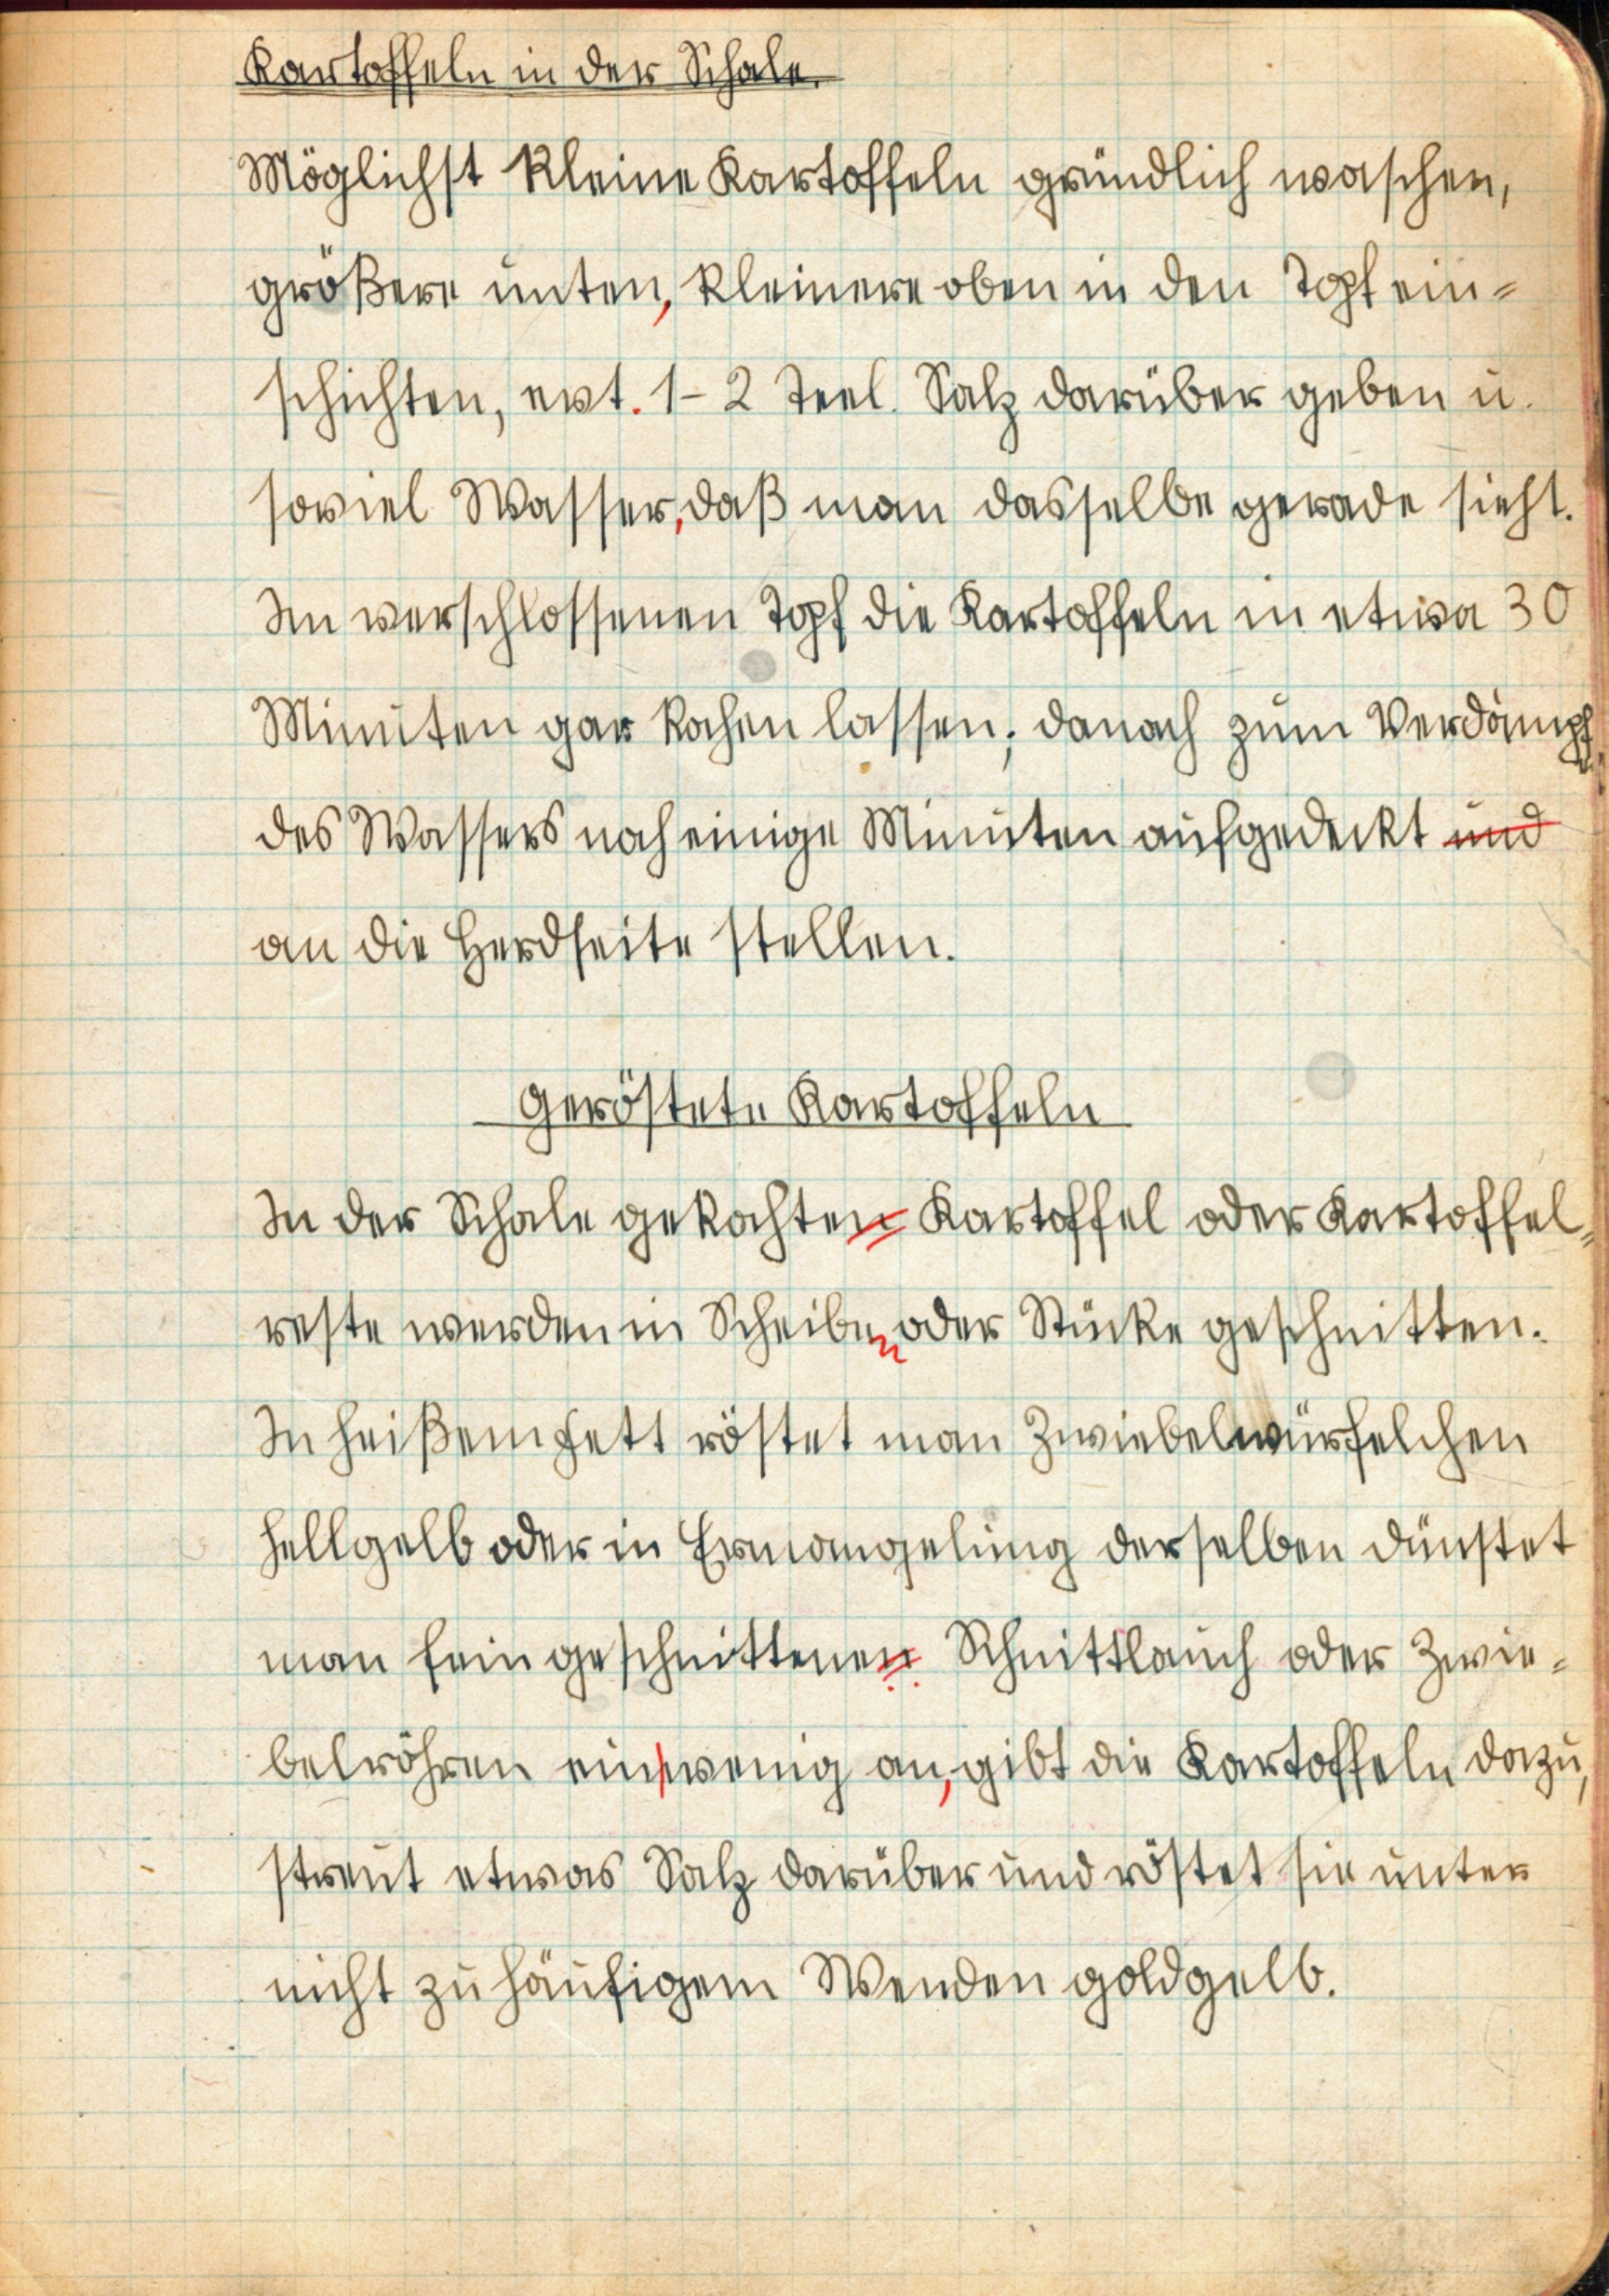 Kartoffeln in der Schale.
Möglichst kleine Kartoffeln gründlich waschen,
größere unten, kleinere oben in den Topf ein=
schichten, evt. 1-2 Teel. Salz darüber geben u.
soviel Wasser, daß man dasselbe gerade sieht.
Im verschlossenen Topf die Kartoffeln in etwa 30
Minuten gar kochen lassen; danach zum Verdampf.
des Wassers noch einige Minuten aufgedeckt und
an die Herdseite stellen.
Geröstete Kartoffeln
In der Schale gekochten Kartoffel oder Kartoffel=
reste werden in Scheiben oder Stücke geschnitten.
In heißem Fett röstet man Zwiebelwürfelchen
hellgelb oder in Ermangelung derselben dünstet
man fein geschnittenen Schnittlauch oder Zwie=
belröhren ein wenig an, gibt die Kartoffeln dazu,
streut etwas Salz darüber und röstet sie unter
nicht zu häufigem Wenden goldgelb.